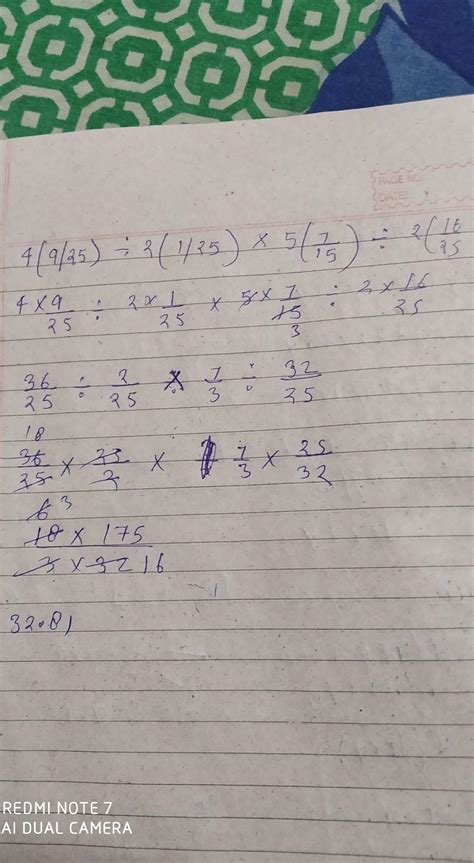 PAGE NO.
DATE:
4(9/25) ÷ 2(1/25) × 5(7/15) ÷ 2(16/25
4×9/25 ÷ 2×1/25 × 5×7/15 ÷ 2×16/25
3
36/25 ÷ 2/25 × 7/3 ÷ 32/25
18
36/25 × 25/2 × 7/3 × 25/32
6 3
18 × 175
3 × 32 16
32.81
REDMI NOTE 7
AI DUAL CAMERA